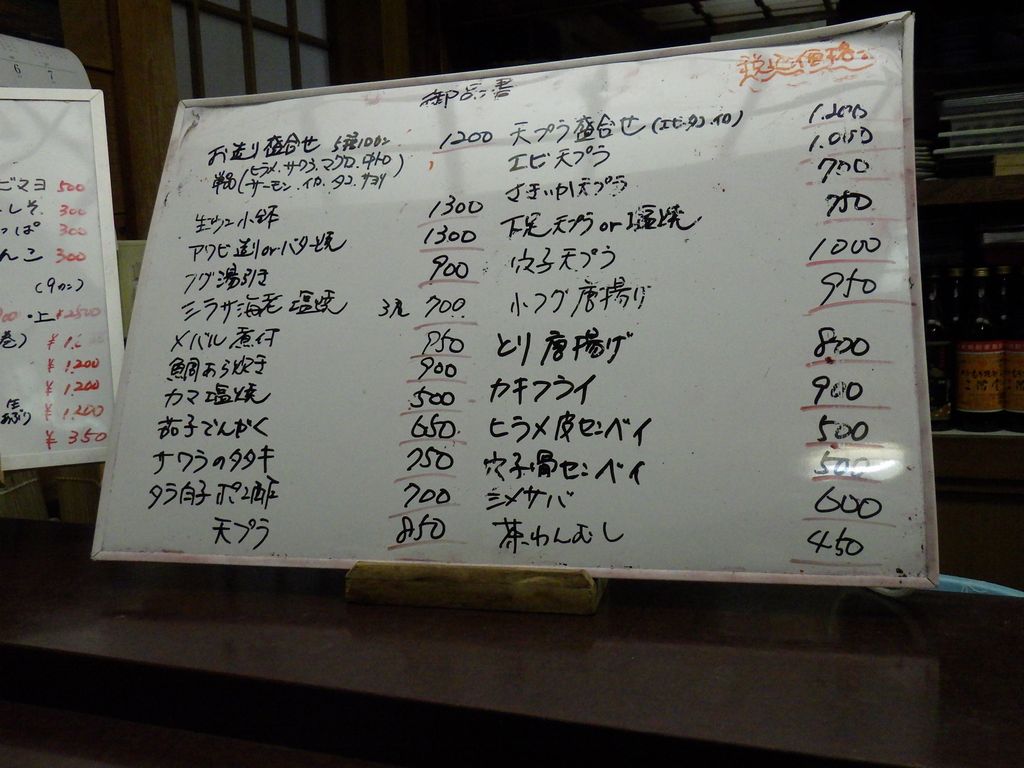 6 7
ビマヨ 500
しそ 300
っぱ 300
んこ 300
(9カン)
・上 ¥2500
巻)
¥1,200
¥1,200
生あぶり ¥1,200
¥350
御品書
税込価格
お造り盛合せ 5種10カン 1200
単品(ヒラメ.サワラ.マグロ.
サーモン.イカ.タコ.サヨリ)
生ウニ小鉢 1300
アワビ造りorバター焼 1300
フグ湯引き 900
シラサ海老塩焼 3尾 700
メバル煮付 950
鯛あら炊き 900
カマ塩焼 500
茄子でんがく 650
サワラのタタキ 750
タラ白子ポン酢 700
天プラ 850
天プラ盛合せ(エビ.タコ.イカ) 1.200
エビ天プラ 1.050
さきいか天プラ 700
下足天プラor塩焼 750
穴子天プラ 1000
小フグ唐揚げ 950
とり唐揚げ 800
カキフライ 900
ヒラメ皮センベイ 500
穴子骨センベイ 500
シメサバ 600
茶わんむし 450